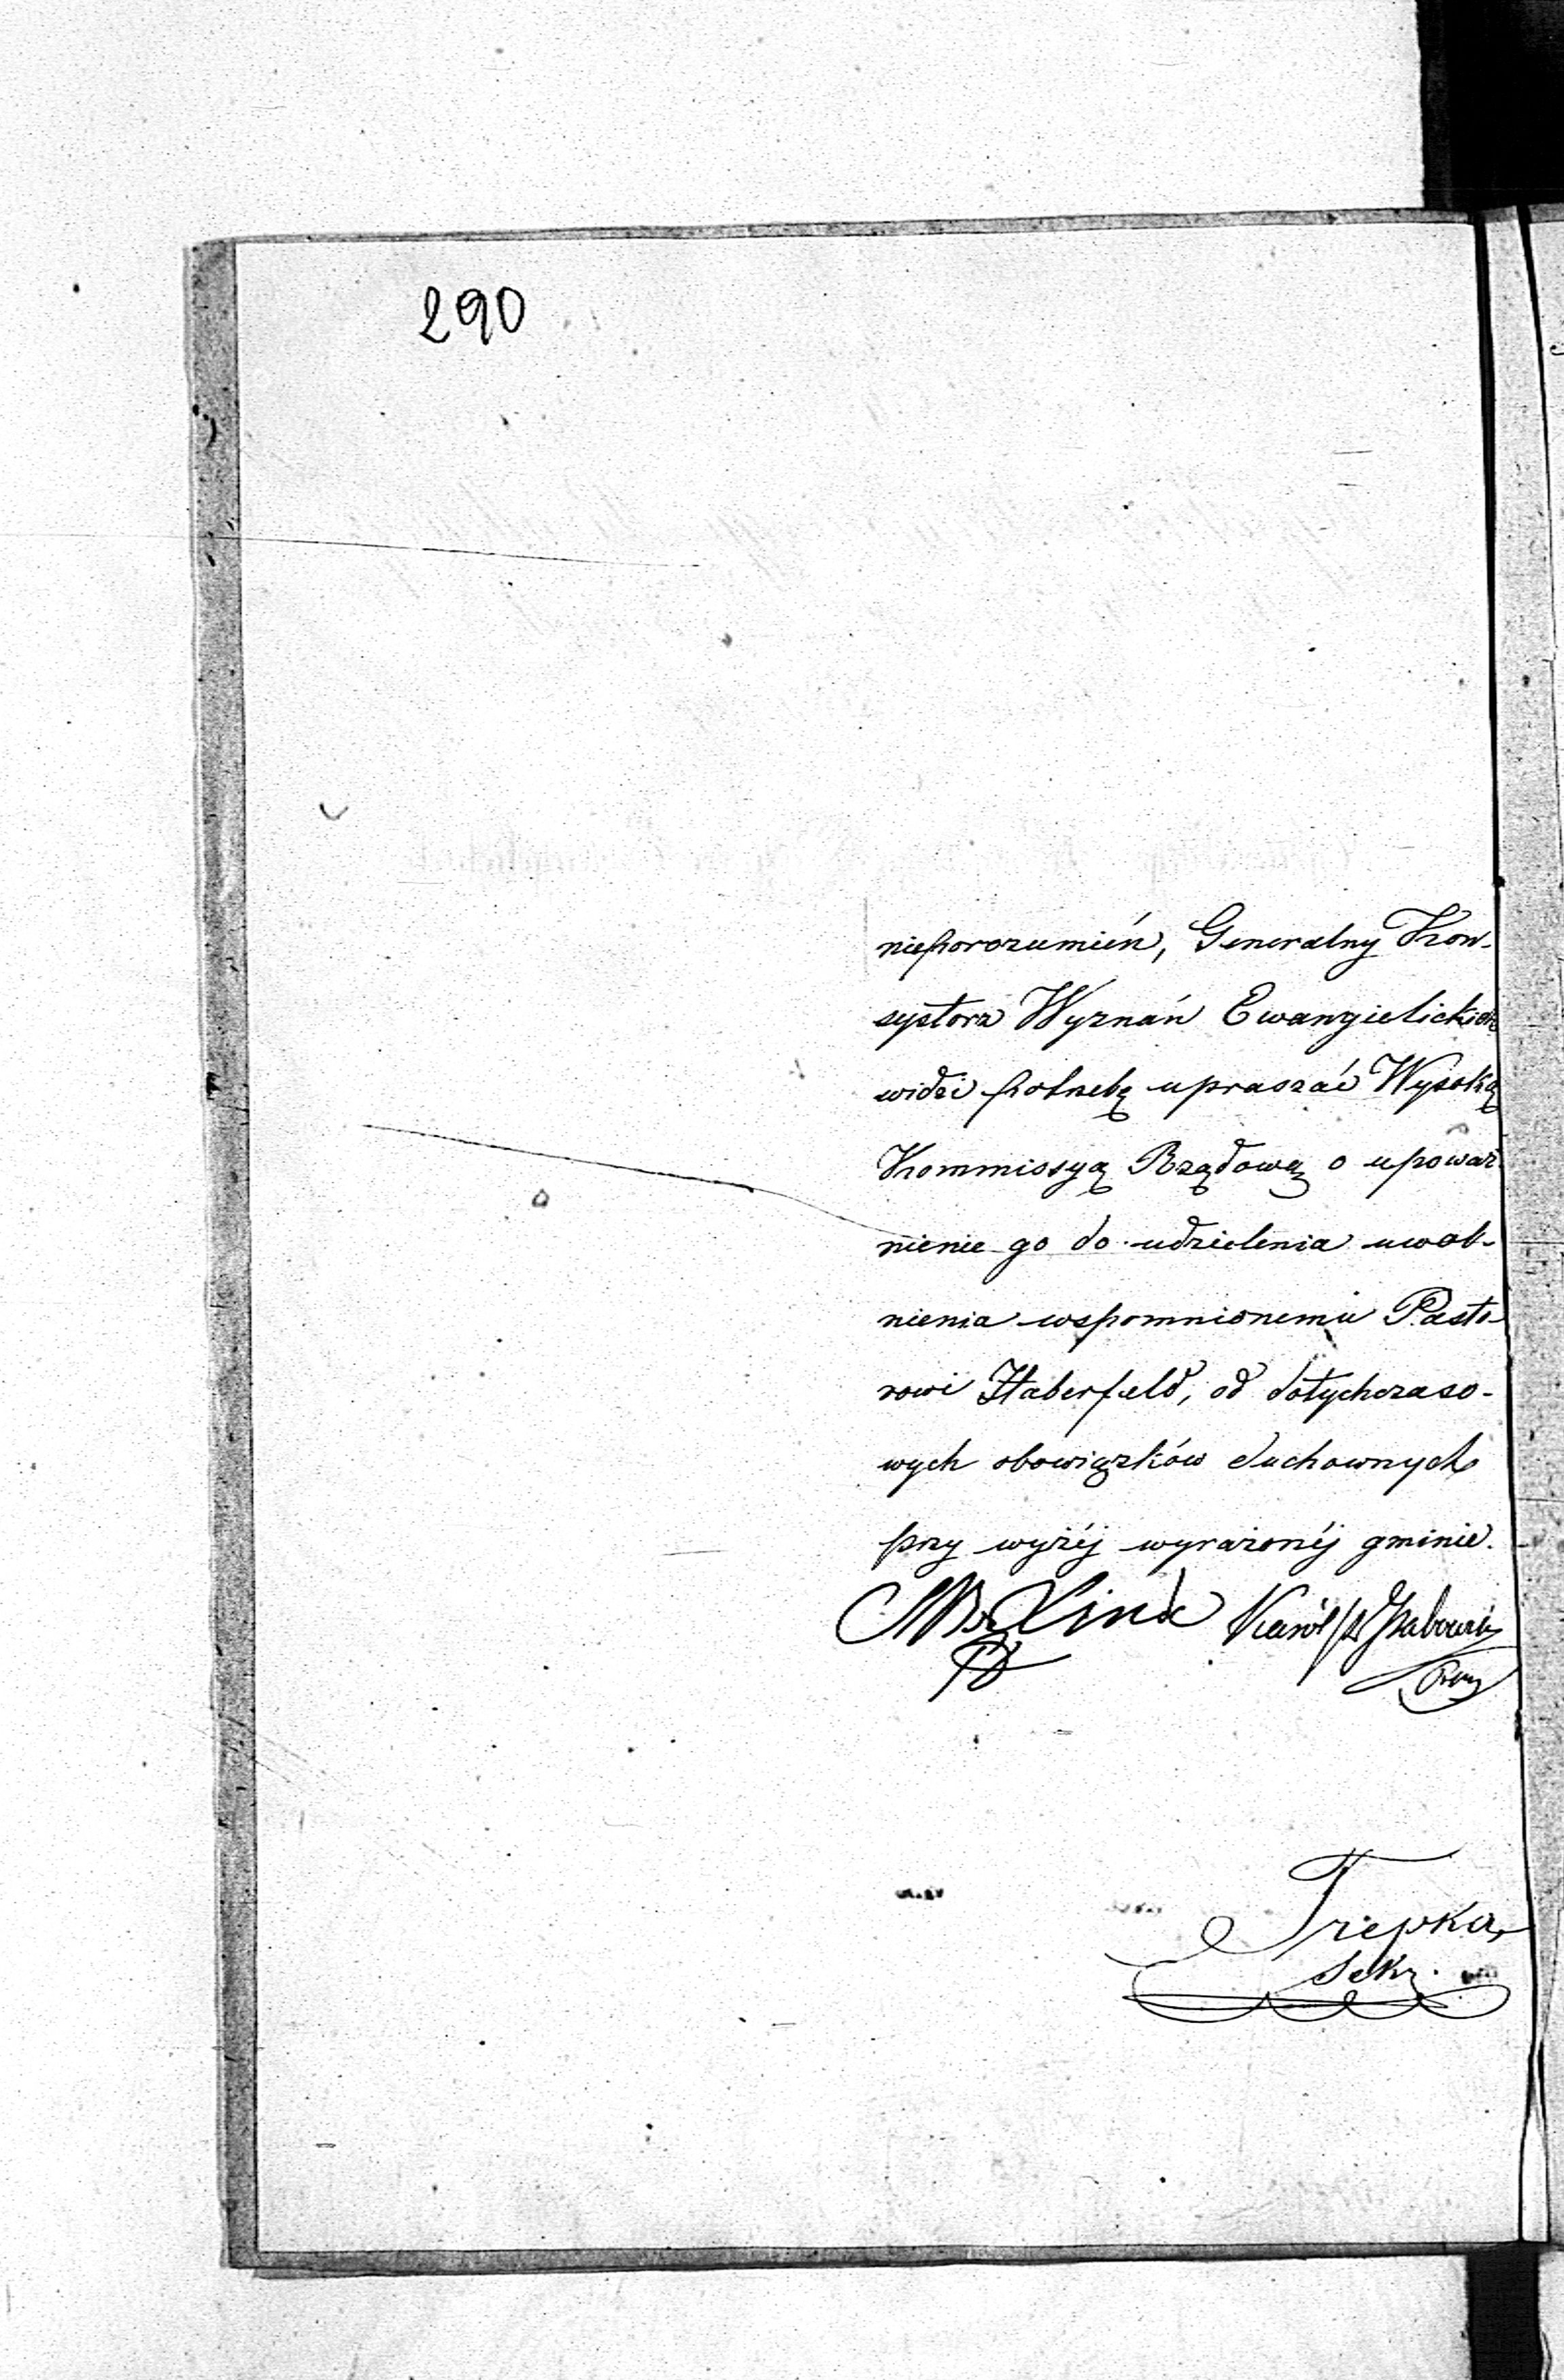 290
nieporozumień, Generalny Kon-
systorz Wyznań Ewangielickich
widzi potrzebę upraszać Wysoką
Kommissyą Rządową o upoważ-
nienie go do udzielenia uwol-
nienia wspomnionemu Pasto-
rowi Haberfeld, od dotychczaso-
wych obowiązków duchownych
przy wyżéj wyrażonéj gminie.
Linde Karól
Trepka
Sekr.